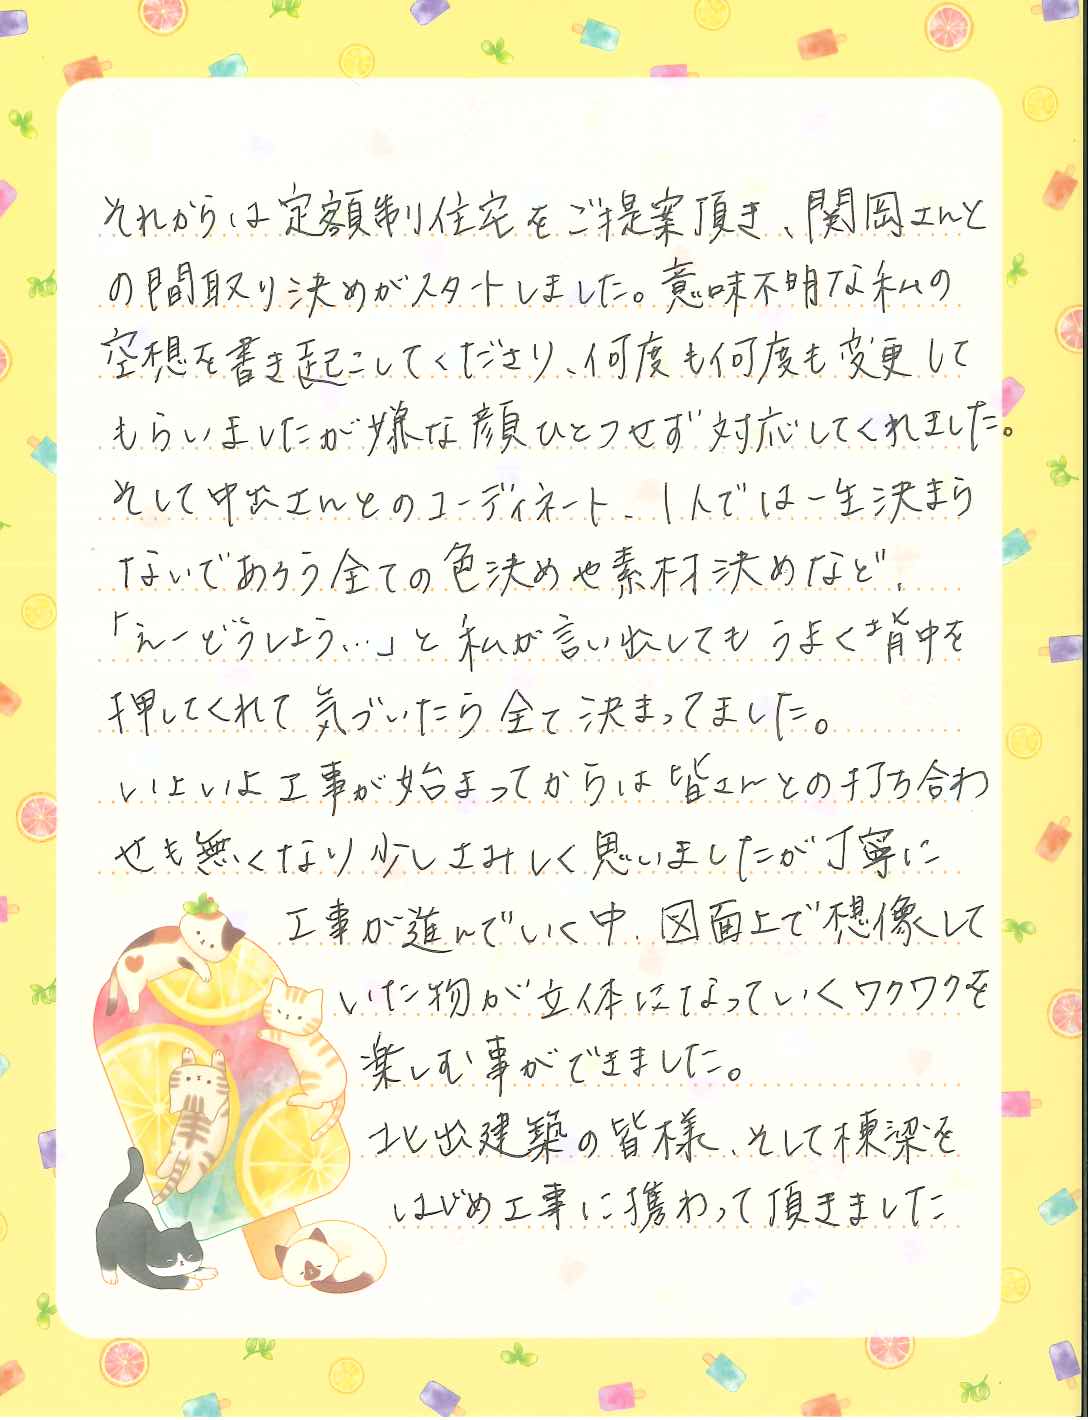 それからは定額制住宅をご提案頂き、関岡さんと
の間取り決めがスタートしました。意味不明な私の
空想を書き起こしてくださり、何度も何度も変更して
もらいましたが嫌な顔ひとつせず対応してくれました。
そして中出さんとのコーディネート、1人では一生決まら
ないであろう全ての色決めや素材決めなど、
「えーどうしよう…」と私が言い出してもうまく背中を
押してくれて気づいたら全て決まってました。
いよいよ工事が始まってからは皆さんとの打ち合わ
せも無くなり少しさみしく思いましたが丁寧に
工事が進んでいく中、図面上で想像して
いた物が立体になっていくワクワクを
楽しむ事ができました。
北出建築の皆様、そして棟梁を
はじめ工事に携わって頂きました